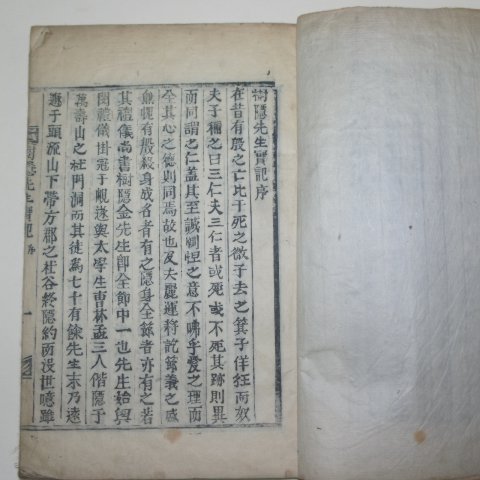 樹隱先生實記序
在昔有殷之亡比干死之微子去之箕子佯狂而奴
夫子稱之曰三仁夫三仁者或死或不死其跡則異
而同謂之仁盖其至誠惻怛之意不咈乎愛之理而
全其心之德則同焉故也及夫麗運將訖節義之盛
無愧有殷殺身成名者有之隱身全節者亦有之若
其禮儀尚書樹隱金先生卽全節中一也先生始與
閔禮儀掛冠于峴遂與太學生曺林孟三人偕隱于
萬壽山之杜門洞而其徒爲七十有餘先生末乃遠
遯于頭流山下帶方郡之杜谷終隱約而沒世噫雖
樹隱先生實記 序 一